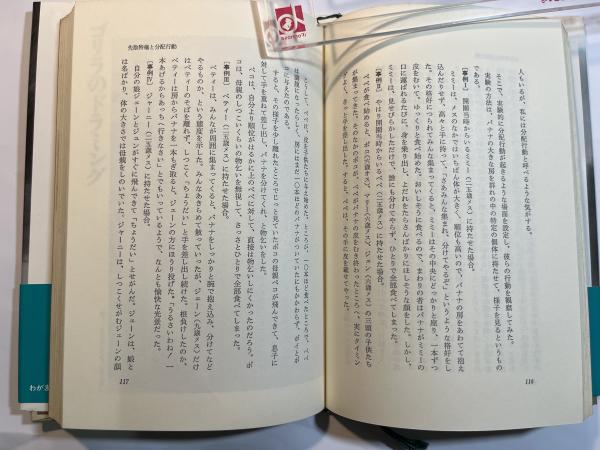 人もいるが、私には分配行動と呼べるような気がする。
そこで、実験的に分配行動が起きるような場面を設定し、彼らの行動を観察してみた。
実験の方法は、バナナの大きな房を群れの中の特定の個体に持たせて、様子を見るというもの
である。
[事例Ⅰ] 開園当時からいるミミー(二五歳メス)に持たせた場合。
ミミーは、メスのなかではいちばん体が大きく、順位も高いので、バナナの房をあわてて抱え
込んだりせず、高々と手に持って、「さあみんな集まれ、分けてやるぞ」というような格好をし
た。その格好につられてみんな集まってくると、ミミーはその中央にどっかりと座り、一本ずつ
皮をむいて、ゆっくりと食べ始めた。おいしそうに食べるので、まわりの者はバナナがミミーの
口に運ばれるたびに、身を乗り出し、よだれをたらさんばかりにほしそうな顔をした。しかし、
ミミーは見せびらかしただけで、誰にも分けてやらず、ひとりで全部食べてしまった。
[事例Ⅱ] やはり開園当時からいるペペ
ペペが食べ始めると、ポコ(六歳オス)、マリー(六歳メス)、ジュン(六歳オス)の三頭の子供たち
が集まってきた。そのなかのポコが、ペペがバナナの皮をむき終わったところへ、実にタイミン
グよく、さっと手を差し出した。すると、ペペは、その手に皮を載せてやった。
対して手を重ねて差し出し、バナナを分けてくれ、と物乞いをした。
ペコは、自分より順位がはるかに上のペペに対して、直接は物乞いしにくかったのだろう。ポ
コは、母親のしつこいくらいの物乞いを無視して、さっさとひとりで全部食べてしまった。
[事例Ⅲ] ベティー(二五歳メス)に持たせた場合。
ベティーは、みんなが周囲に集まってくると、バナナをしっかりと腕で抱え込み、分けてなど
やるものか、という態度を示した。みんなあきらめて散っていったが、ジェーン(九歳メス)だけ
はベティーのそばを離れず、しつこく「ちょうだい」と手を差し出し続けた。根負けしたのか、
ベティーは房からバナナを一本もぎ取ると、ジェーンの方にほうり投げた。「うるさいわね!一
本あげるからあっちへ行きなさい」とでもいっているようで、なんとも愉快な光景だった。
[事例Ⅳ] ジャーニー(二五歳メス)に持たせた場合。
自分の娘ジェーンとジュンがすぐに飛んできて「ちょうだい」とせがんだ。ジェーンは、娘と
は名ばかり、体の大きさでは母親をしのいでいた。ジャーニーは、しつこくせがむジェーンの顔
先陰特痛と分配行動
116
117
わが